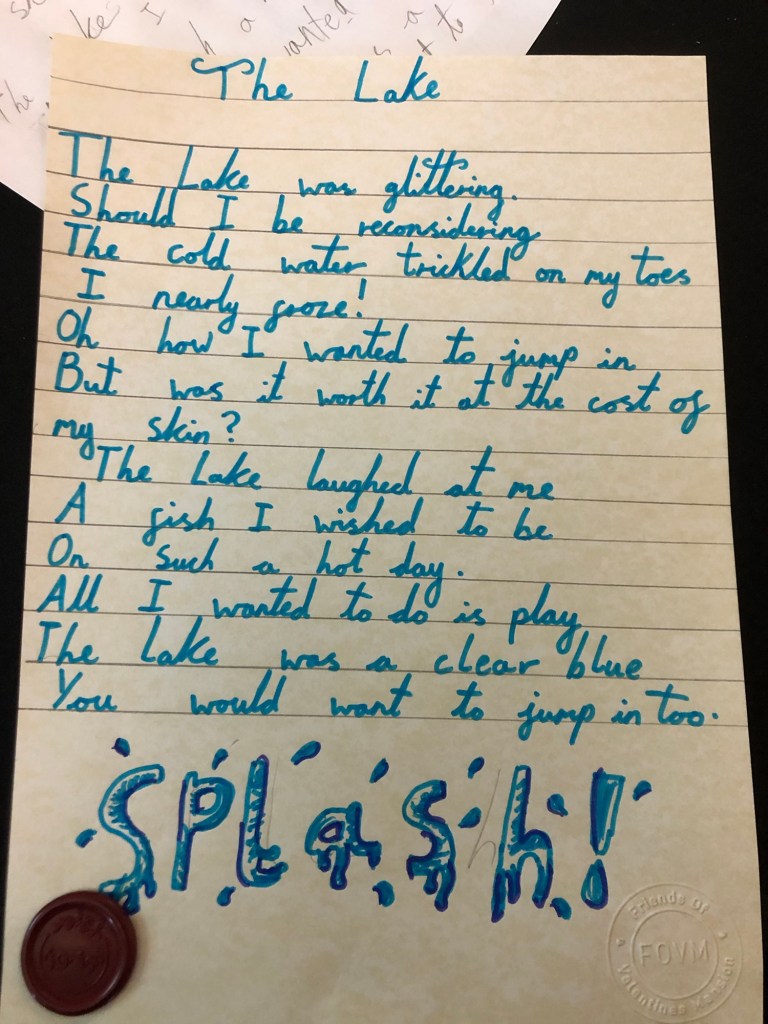 The Lake
The Lake was glittering.
Should I be reconsidering
The cold water trickled on my toes
I nearly froze!
Oh how I wanted to jump in
But was it worth it at the cost of
my skin?
The Lake laughed at me
A fish I wished to be
On such a hot day.
All I wanted to do is play
The Lake was a clear blue
You would want to jump in too.
SPLaSh!
Friends Of
FOVM
Valentines Mansion